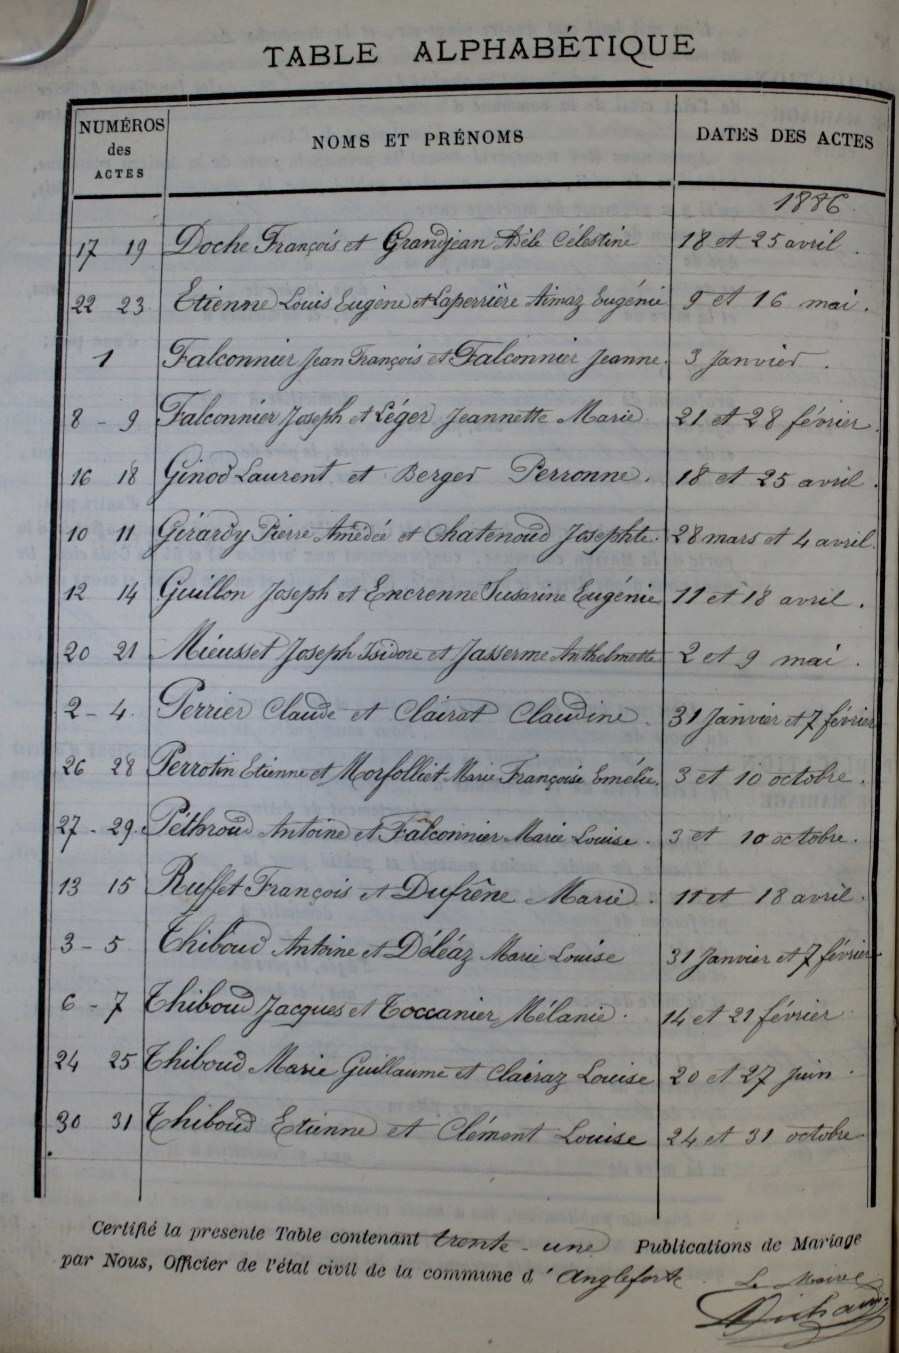 TABLE ALPHABÉTIQUE
NUMÉROS des ACTES NOMS ET PRÉNOMS DATES DES ACTES
1886
17 19 Doche François et Grandjean Adèle Célestine 18 et 25 avril
22 23 Etienne Louis Eugène et Laperrière Aimaz Eugénie 9 et 16 mai.
1 Falconnier Jean François et Falconnier Jeanne. 3 Janvier.
8 - 9 Falconnier Joseph et Léger Jeannette Marie 21 et 28 février.
16 18 Ginod Laurent et Berger Perronne. 18 et 25 avril.
10 11 Girardy Pierre Amédée et Chatenoud Josephte. 28 mars et 4 avril.
12 14 Guillon Joseph et Encrenne Eugénie 11 et 18 avril.
20 21 Mieusset Joseph Isidore et Jasserme Anthelmette 2 et 9 mai.
2 - 4 Perrier Claude et Clairat Claudine. 31 Janvier et 7 février
26 28 Perrotin Etienne et Morfolliet Marie Françoise Emélie. 3 et 10 octobre.
27 - 29. Antoine et Falconnier Marie Louise. 3 et 10 octobre.
13 15 Ruffet François et Dufrêne Marie. 11 et 18 avril.
3 - 5 Thiboud Antoine et Déléaz Marie Louise 31 Janvier et 7 février
6 - 7 Thiboud Jacques et Toccanier Mélanie. 14 et 21 février
24 25 Thiboud Marie Guillaume et Clairaz Louise 20 et 27 Juin.
30 31 Thiboud Etienne et Clément Louise 24 et 31 octobre.
Certifié la presente Table contenant trente-une Publications de Mariage
par Nous, Officier de l'état civil de la commune d'Anglefort. Le Maire